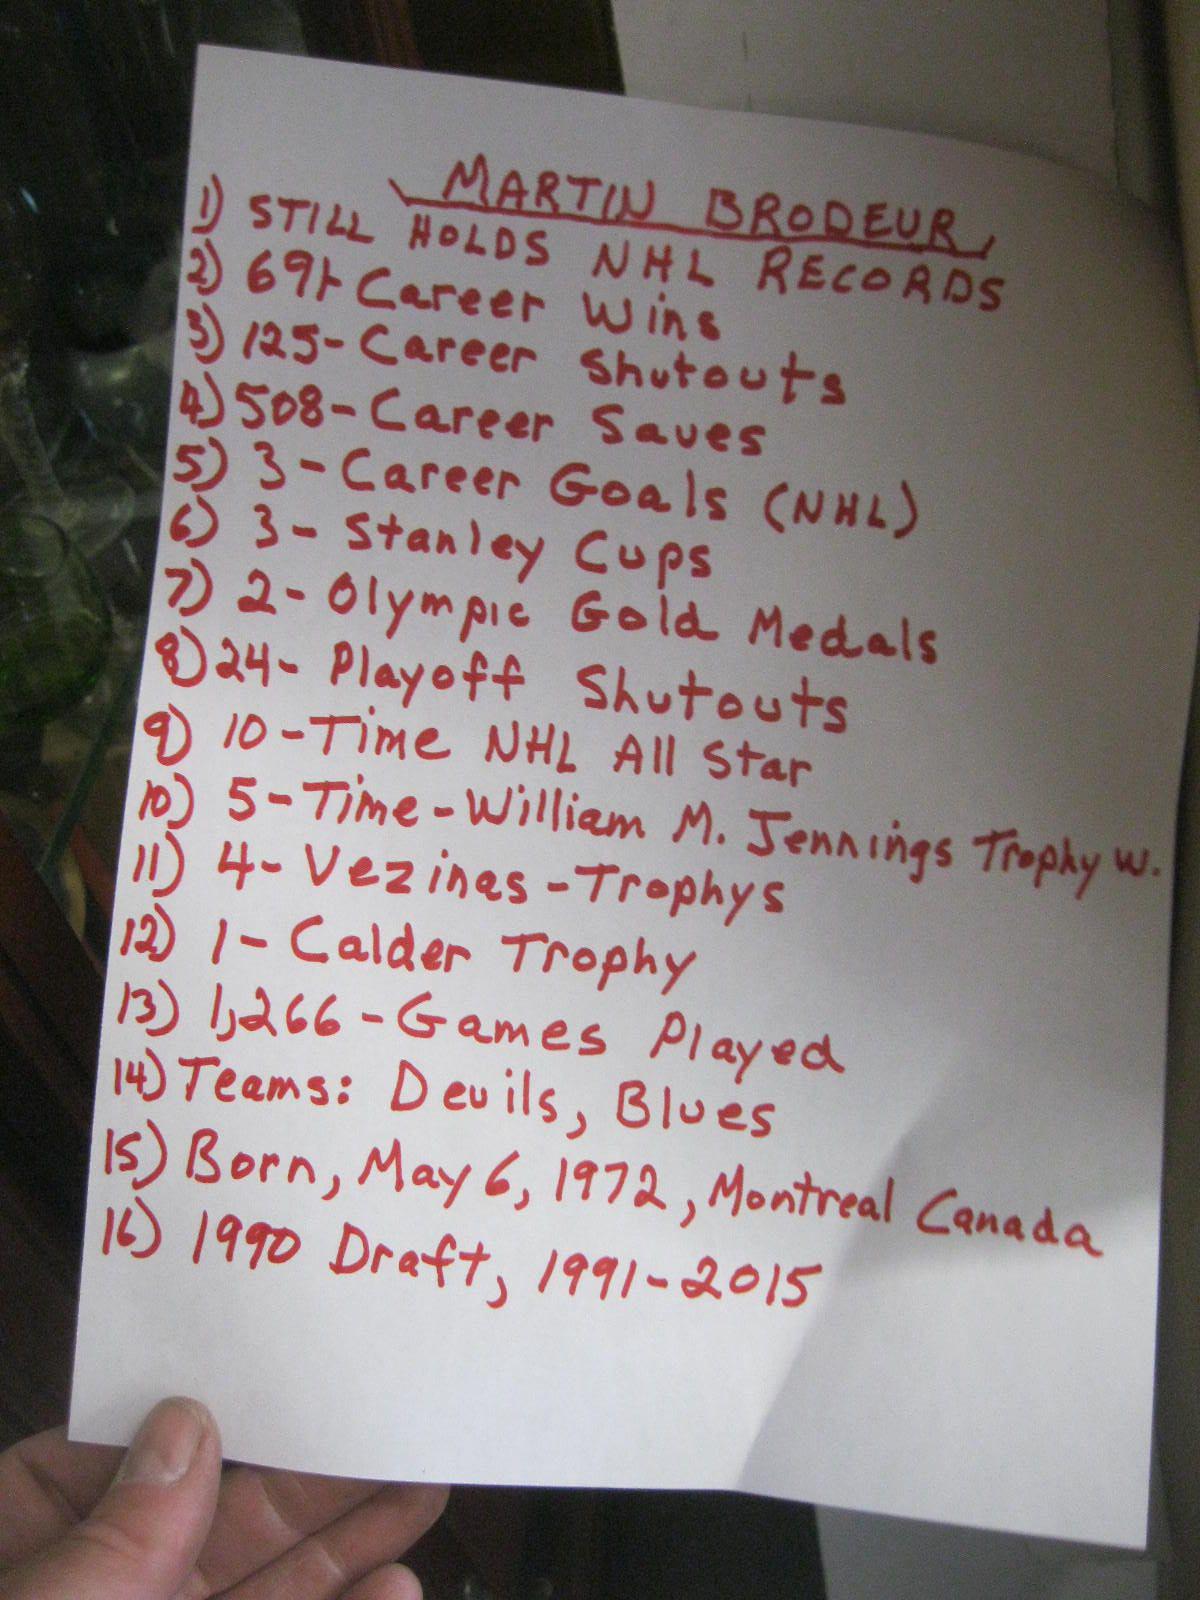 MARTIN BRODEUR
1) STILL HOLDS NHL RECORDS
2) 691-Career Wins
3) 125-Career Shutouts
4) 508-Career Saves
5) 3-Career Goals (NHL)
6) 3-Stanley Cups
7) 2-Olympic Gold Medals
8) 24-Playoff Shutouts
9) 10-Time NHL All Star
10) 5-Time-William M. Jennings Trophy W.
11) 4-Vezinas-Trophys
12) 1-Calder Trophy
13) 1,266-Games Played
14) Teams: Devils, Blues
15) Born, May 6, 1972, Montreal Canada
16) 1990 Draft, 1991-2015